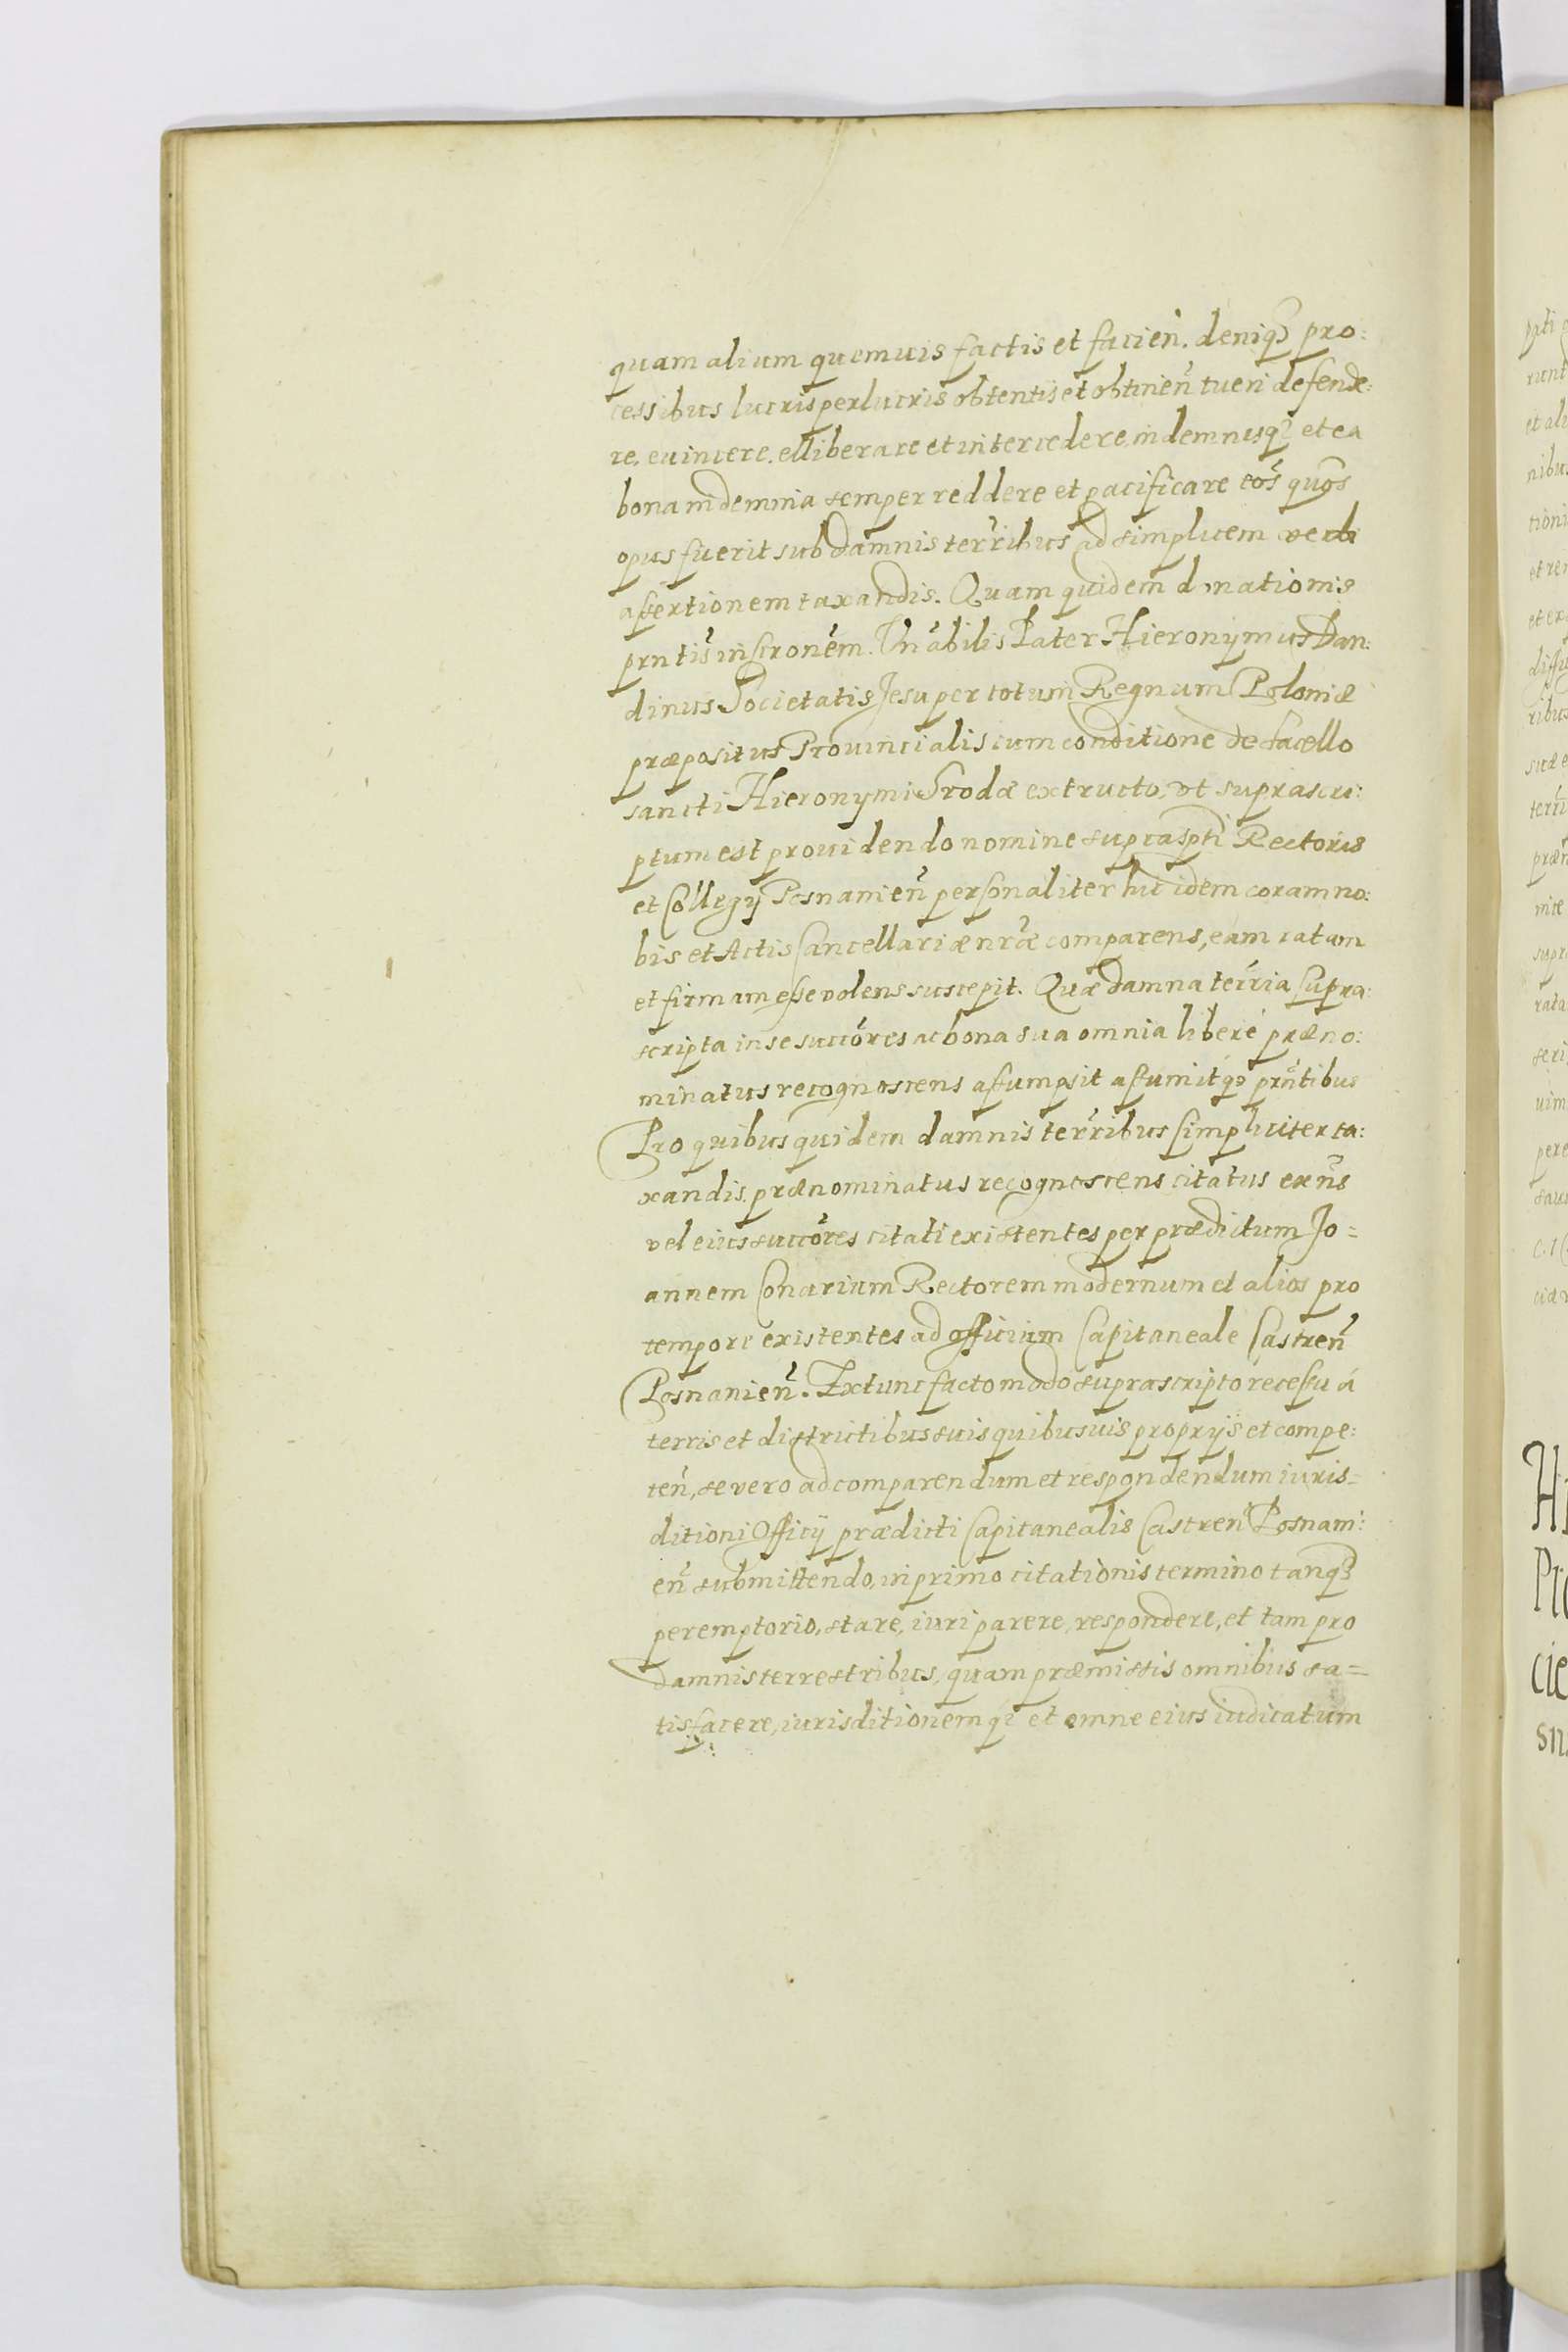 quam alium quemuis factis et facień. deniq3 pro:
cessibus lucris perlucris obtentis et obtineñ tueri defende:
re, euincere. elliberare et intercedere, indemnesq3 et ea
bona indemnia semper reddere et pacificare eos quos
opus fuerit sub damnis terribus ad simplicem verbi
assertionem taxandis. Quam quidem donationis
prntis inscronem. Vnabilis Pater Hieronymus Dan:
dinus Societatis Jesu per totum Regnum Poloniæ
præpositus Prouincialis cum conditione de sacello
sancti Hieronymi Srodæ extructo, vt suprascri:
ptum est prouidendo nomine suprasptı Rectoris
et Collegij Posnanieñ personaliter hic idem coram no:
bis et Actis Cancellariæ nræ comparens, eam ratam
et firmam esse volens suscepit. Quæ damna terria supra:
scripta in se succores ac bona sua omnia liberé præno:
minatus recognoscens assumpsit assumitq3 prntibus
Pro quibus quidem damnis terribus simpliciter ta:
xandis. prænominatus recognoscens citatus exñs
vel eius succores citati existentes per prædictum Jo=
annem Conarium Rectorem modernum et alios pro
tempore existentes ad officium Capitaneale Castreñ
Posnanieñ. Extunc facto modo suprascripto recessu á
terris et districtibus suis quibusuis proprijs et compe:
teñ, se vero ad comparendum et respondendum iuris=
ditioni Officij prædicti Capitanealis Castreñ Posnani:
eñ submittendo, in primo citationis termino tanq3
peremptorio, stare, iuri parere, respondere, et tam pro
damnis terrestribus, quam præmissis omnibus sa=
tisfacere, iurisditionemq3 et omne eius iudicatum